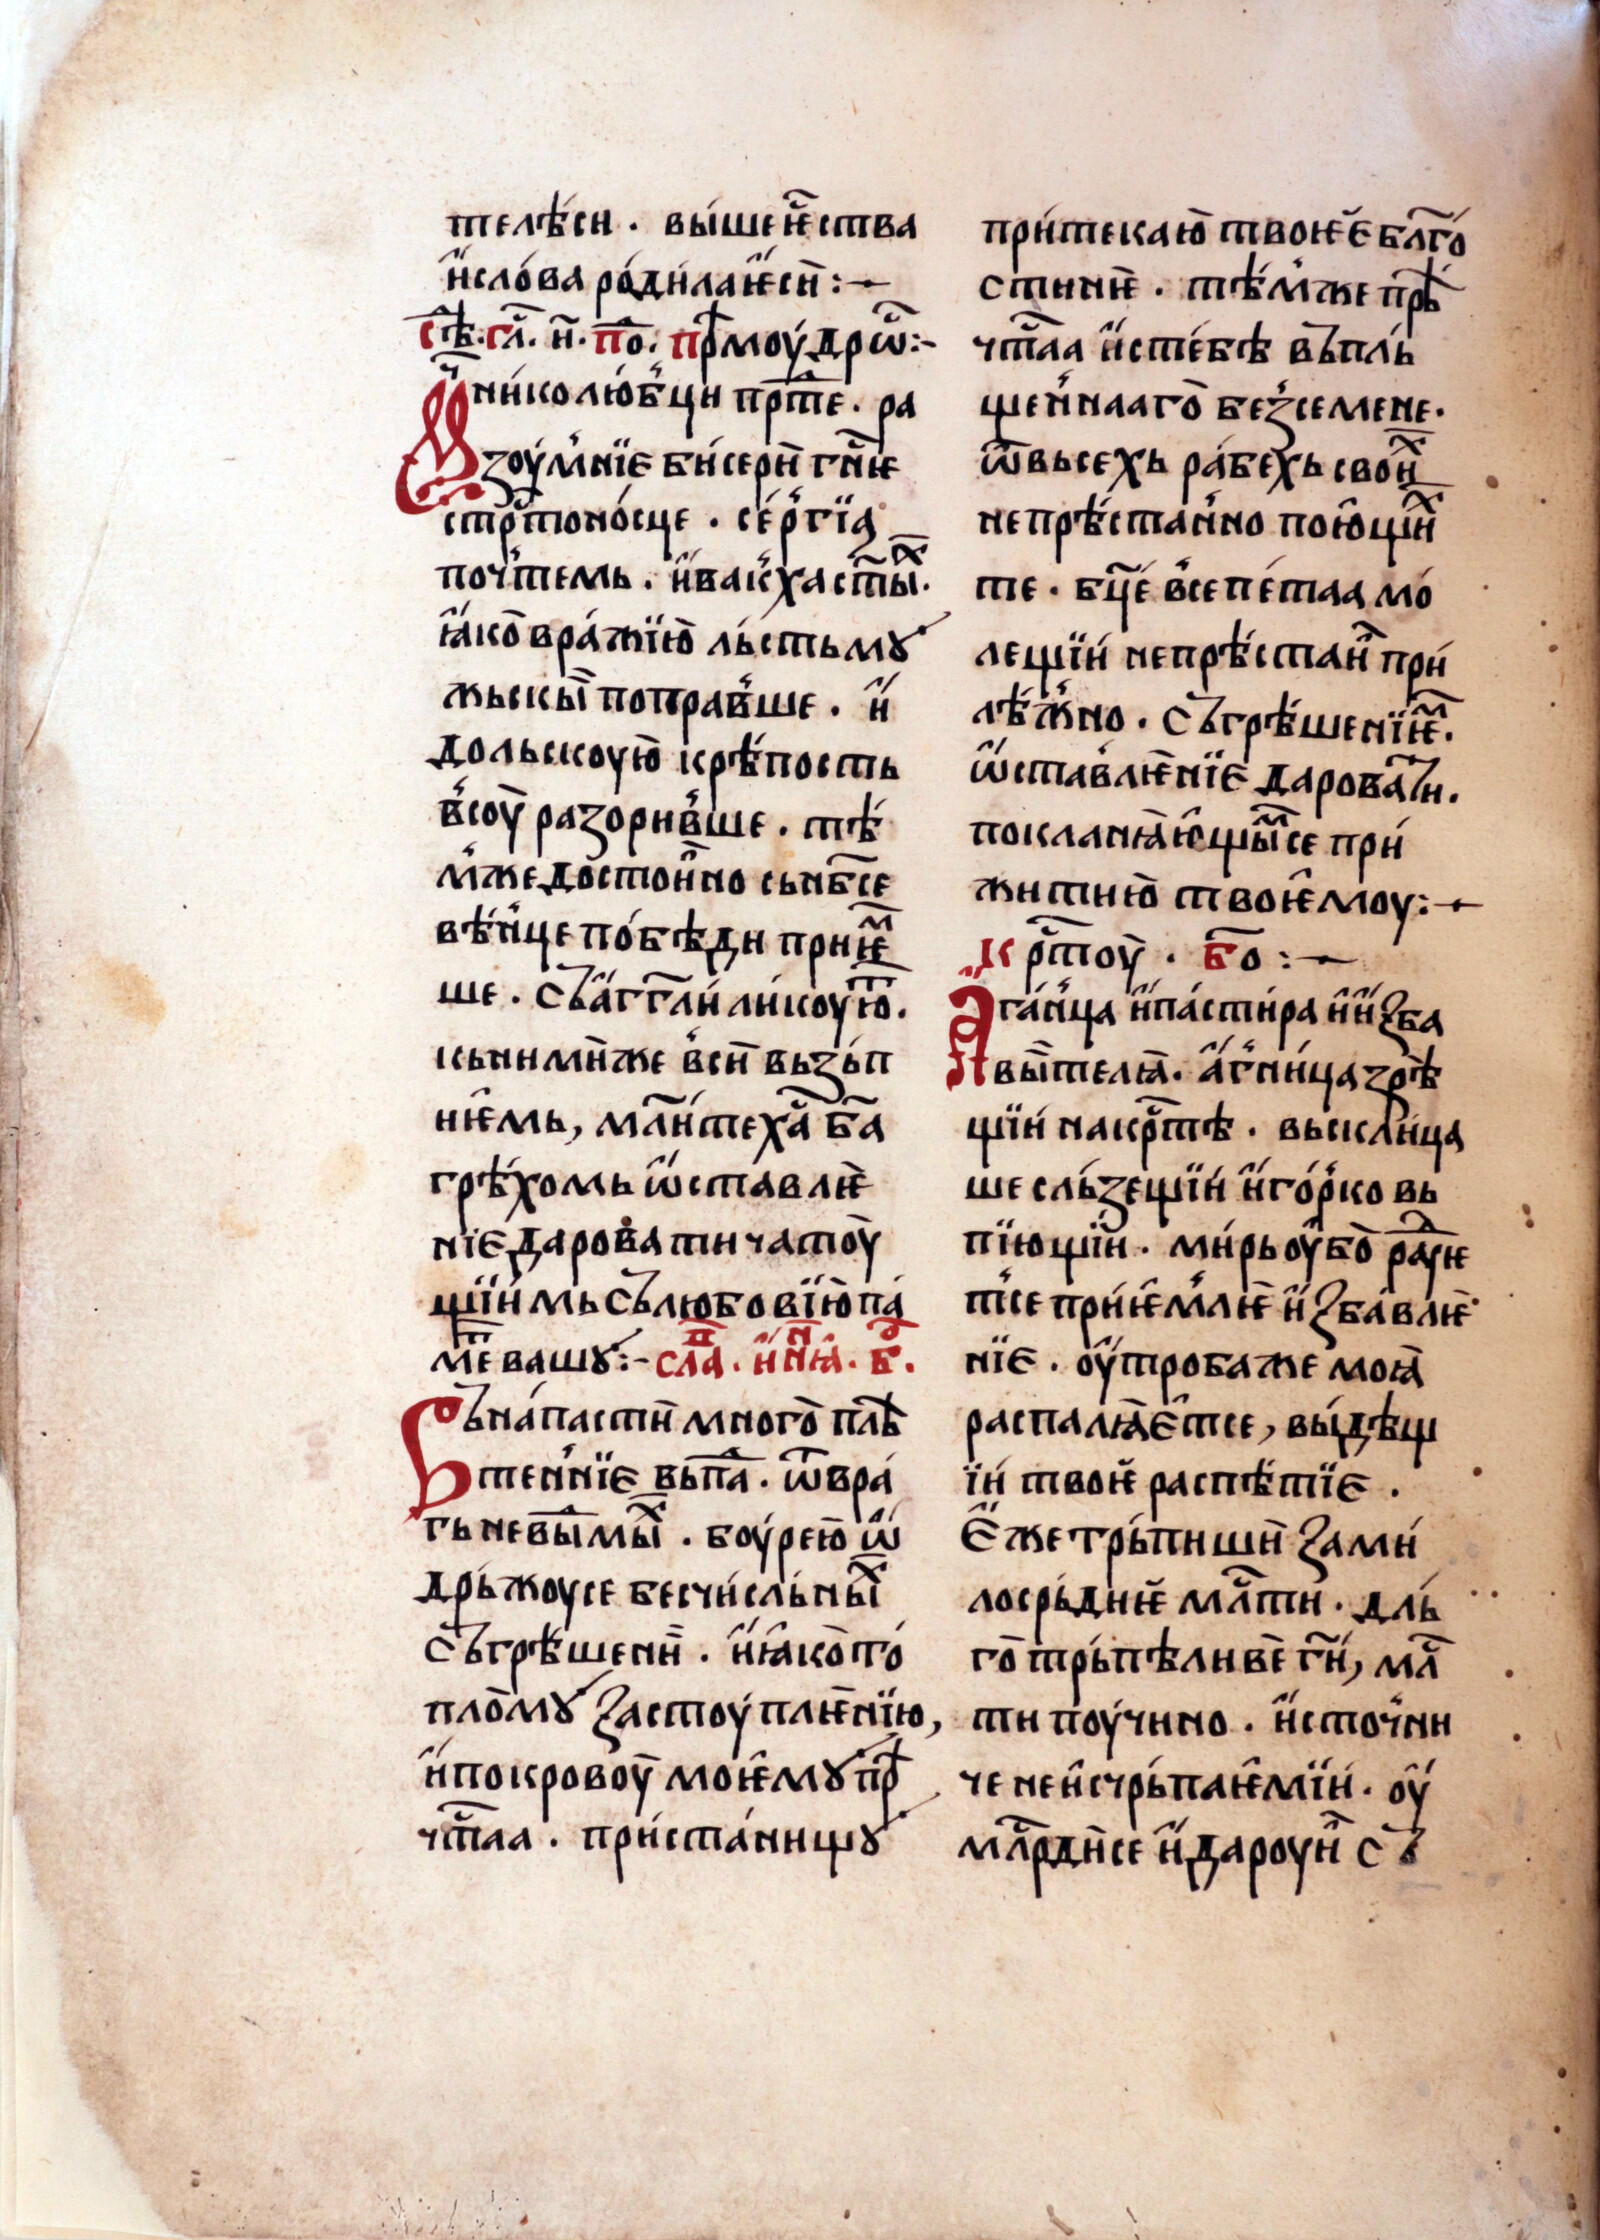 телѣси · вы́ше ѥс҇тства
и҆сло́ва роди́ла ѥ҆сѝ :~
сѣ҇д · гла҇ · и҃ · по҇ · прѣмоу́дрѡ҇ :~
Мѹ҆ч҇нико лю́б'ци прт҇е · ра
зоу́м'нїе би́сери̏ г҇нѥ
стрт҇оно́сце · се́р'гїа
поч'темь · и҆ вак'ха ст҃ы́х ·
ꙗ҆́ко вра́жїю̏ льсть мꙋ
жьскы̏ поправ'ше · и҆
дольскоую̏ крѣ́пость
в'соу̏ разорив'ше · тѣ́
м'же досто́и҆но сь нб҃се
вѣ́н'це побѣди прїѥм
ше · съ а҆г҃гли ликоую́т ·
кь ни́мже в'си̏ вьзьп
нѥ҆мь, мл҃ите х҃а б҃а
грѣ́хомь ѡ҆ставлѥ
нїе дарова́ти чтоу́
щїи́мь съ любовїю̏ па́
ме҇т вашꙋ :~ сла҇ · и҆ н҃ꙗ · б҇ ·
Въ на́пасти̏ много̏ плѣ
тен'нїе вьпа҇ · ѿ вра́
гь невы҇мы́х · боуре́ю ѡ҆
дрьжоу се бесчи́сльны́х
съгрѣшени̏ · и҆ ꙗ҆́ко то́
пломꙋ застоуплѥ́нїю,
и҆ покровоу̏ моѥ҆мꙋ прѣ
чт҇аа · приста́нищꙋ
при́текаю̏ твоѥе̏ бл҃го́
стинѥ̏ · тѣ́м'же прѣ́
чт҇аа и҆сте́бѣ въпль́
щен'нааго̏ без'семене ·
ѿ вьсехь ра́бехь свои́х
непрѣста́н'но пою҆щи́х
те · бц҃е́ в'сепе́таа мо́
лещїи́ непрѣстан'но при́
лѣж'но · съгрѣшенїѥ́м ·
ѡ҆став'лѥ́нїе даровати ·
покланꙗю҆щы́м се при́
житию̏ твоѥ҆моу :~
Крт҇оу̏ · бо҇ :~
Аган'ца и҆ па́стира и҆ и҆зба
вы҇телꙗ̏ · а҆́г'ни́ца зрѣ
щїи́ на крт҇ѣ · вьскли́ца
ше сль́зещїи́ и҆ го́р'ко вь
пїющїи̏ · ми́рь оу҆бо̏ рад҇ѥ
т'се прї́ѥмлѥ̏ и҆збавлѥ̏
нїе · оу҆троба же моꙗ̏
распалꙗ́ѥ҆тсе, вы́дѣщ
їи́ твоѥ̏ распѣ́тїе ·
е҆же трь́пиши̏ за ми́
лосрь́диѥ̏ мл҇ти · дль́
го̏трь́пѣливе̏ г҇и́, мл҇
ти поучино · и҆сточ'ни
че неи҆счрь́паѥ҆мїи́ · оу҆
мл҇рдисе и҆ дароуи̏ съ